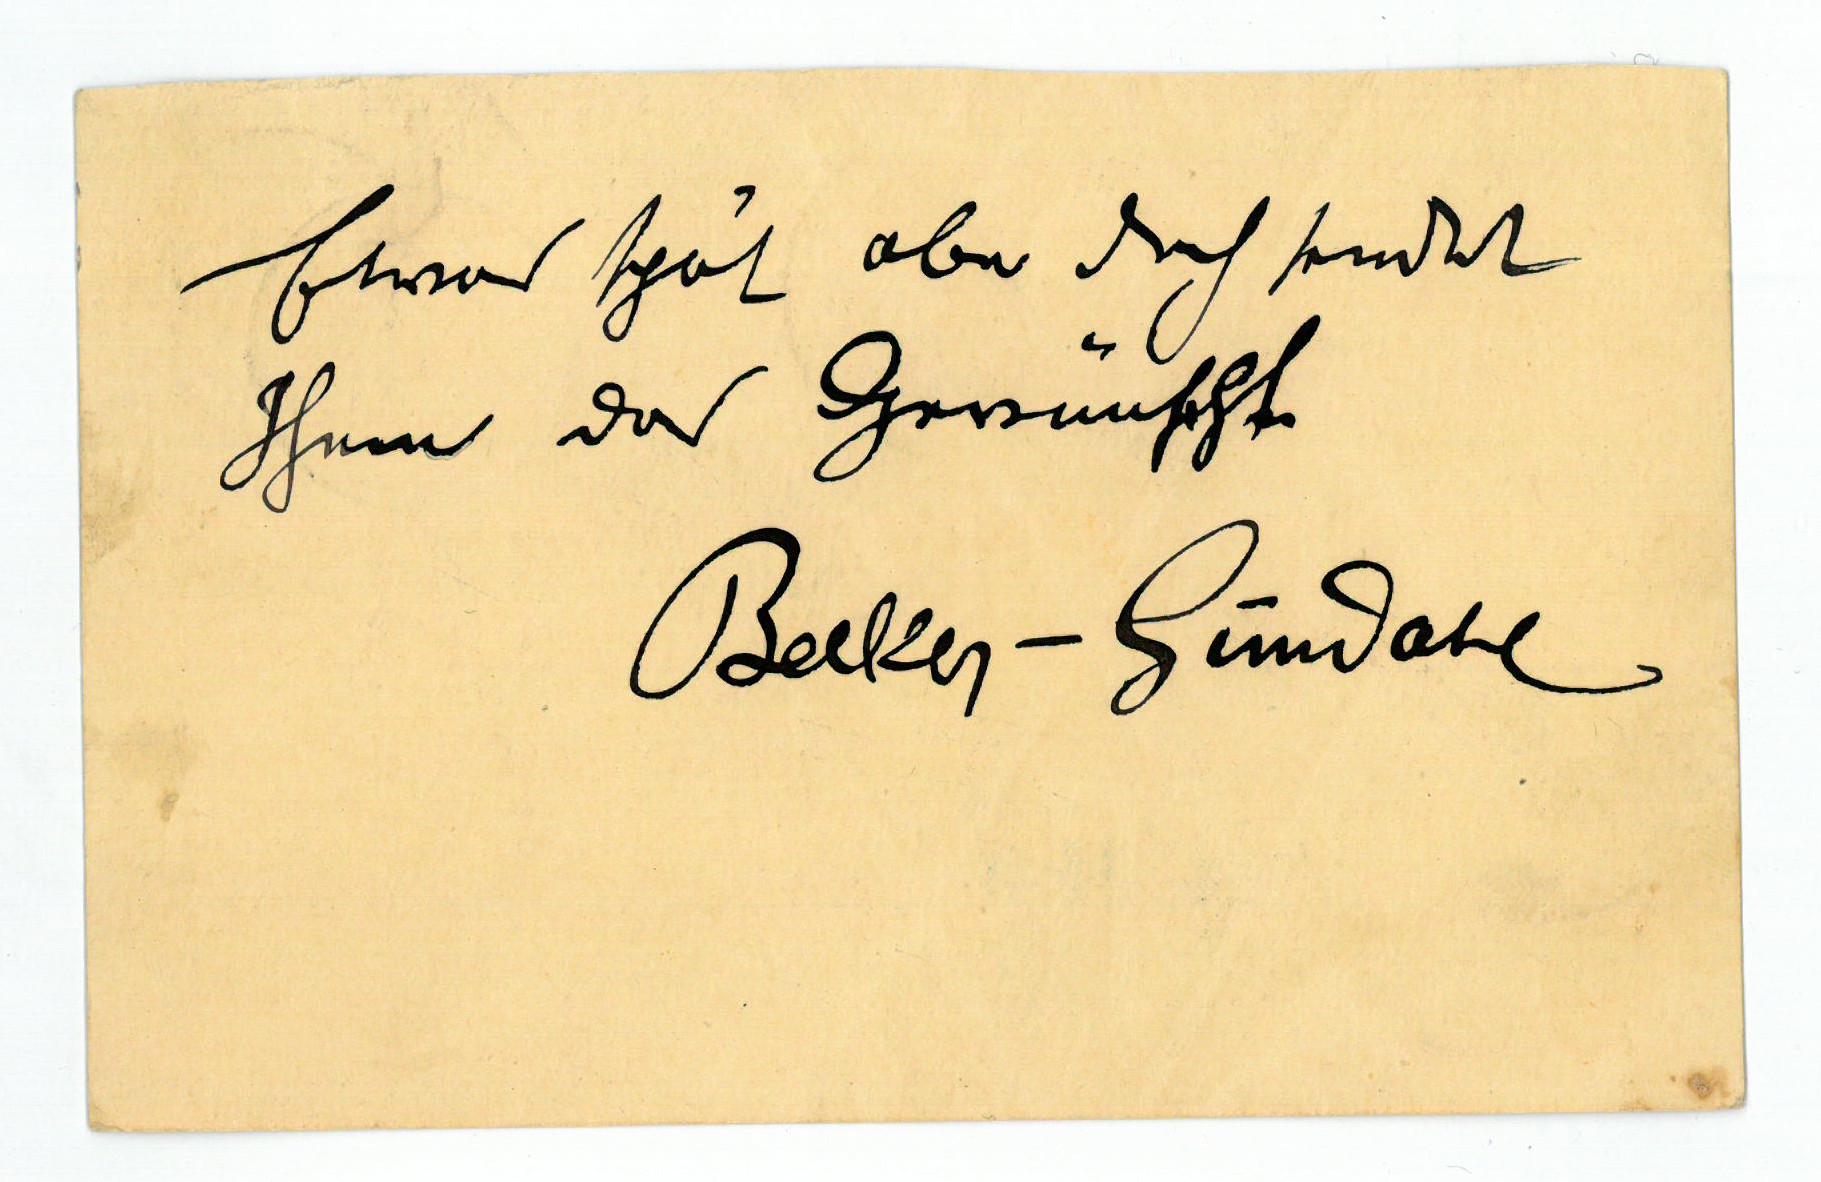 Etwas spät aber doch sendet
Ihnen das Gewünschte
Becker-Gundahl